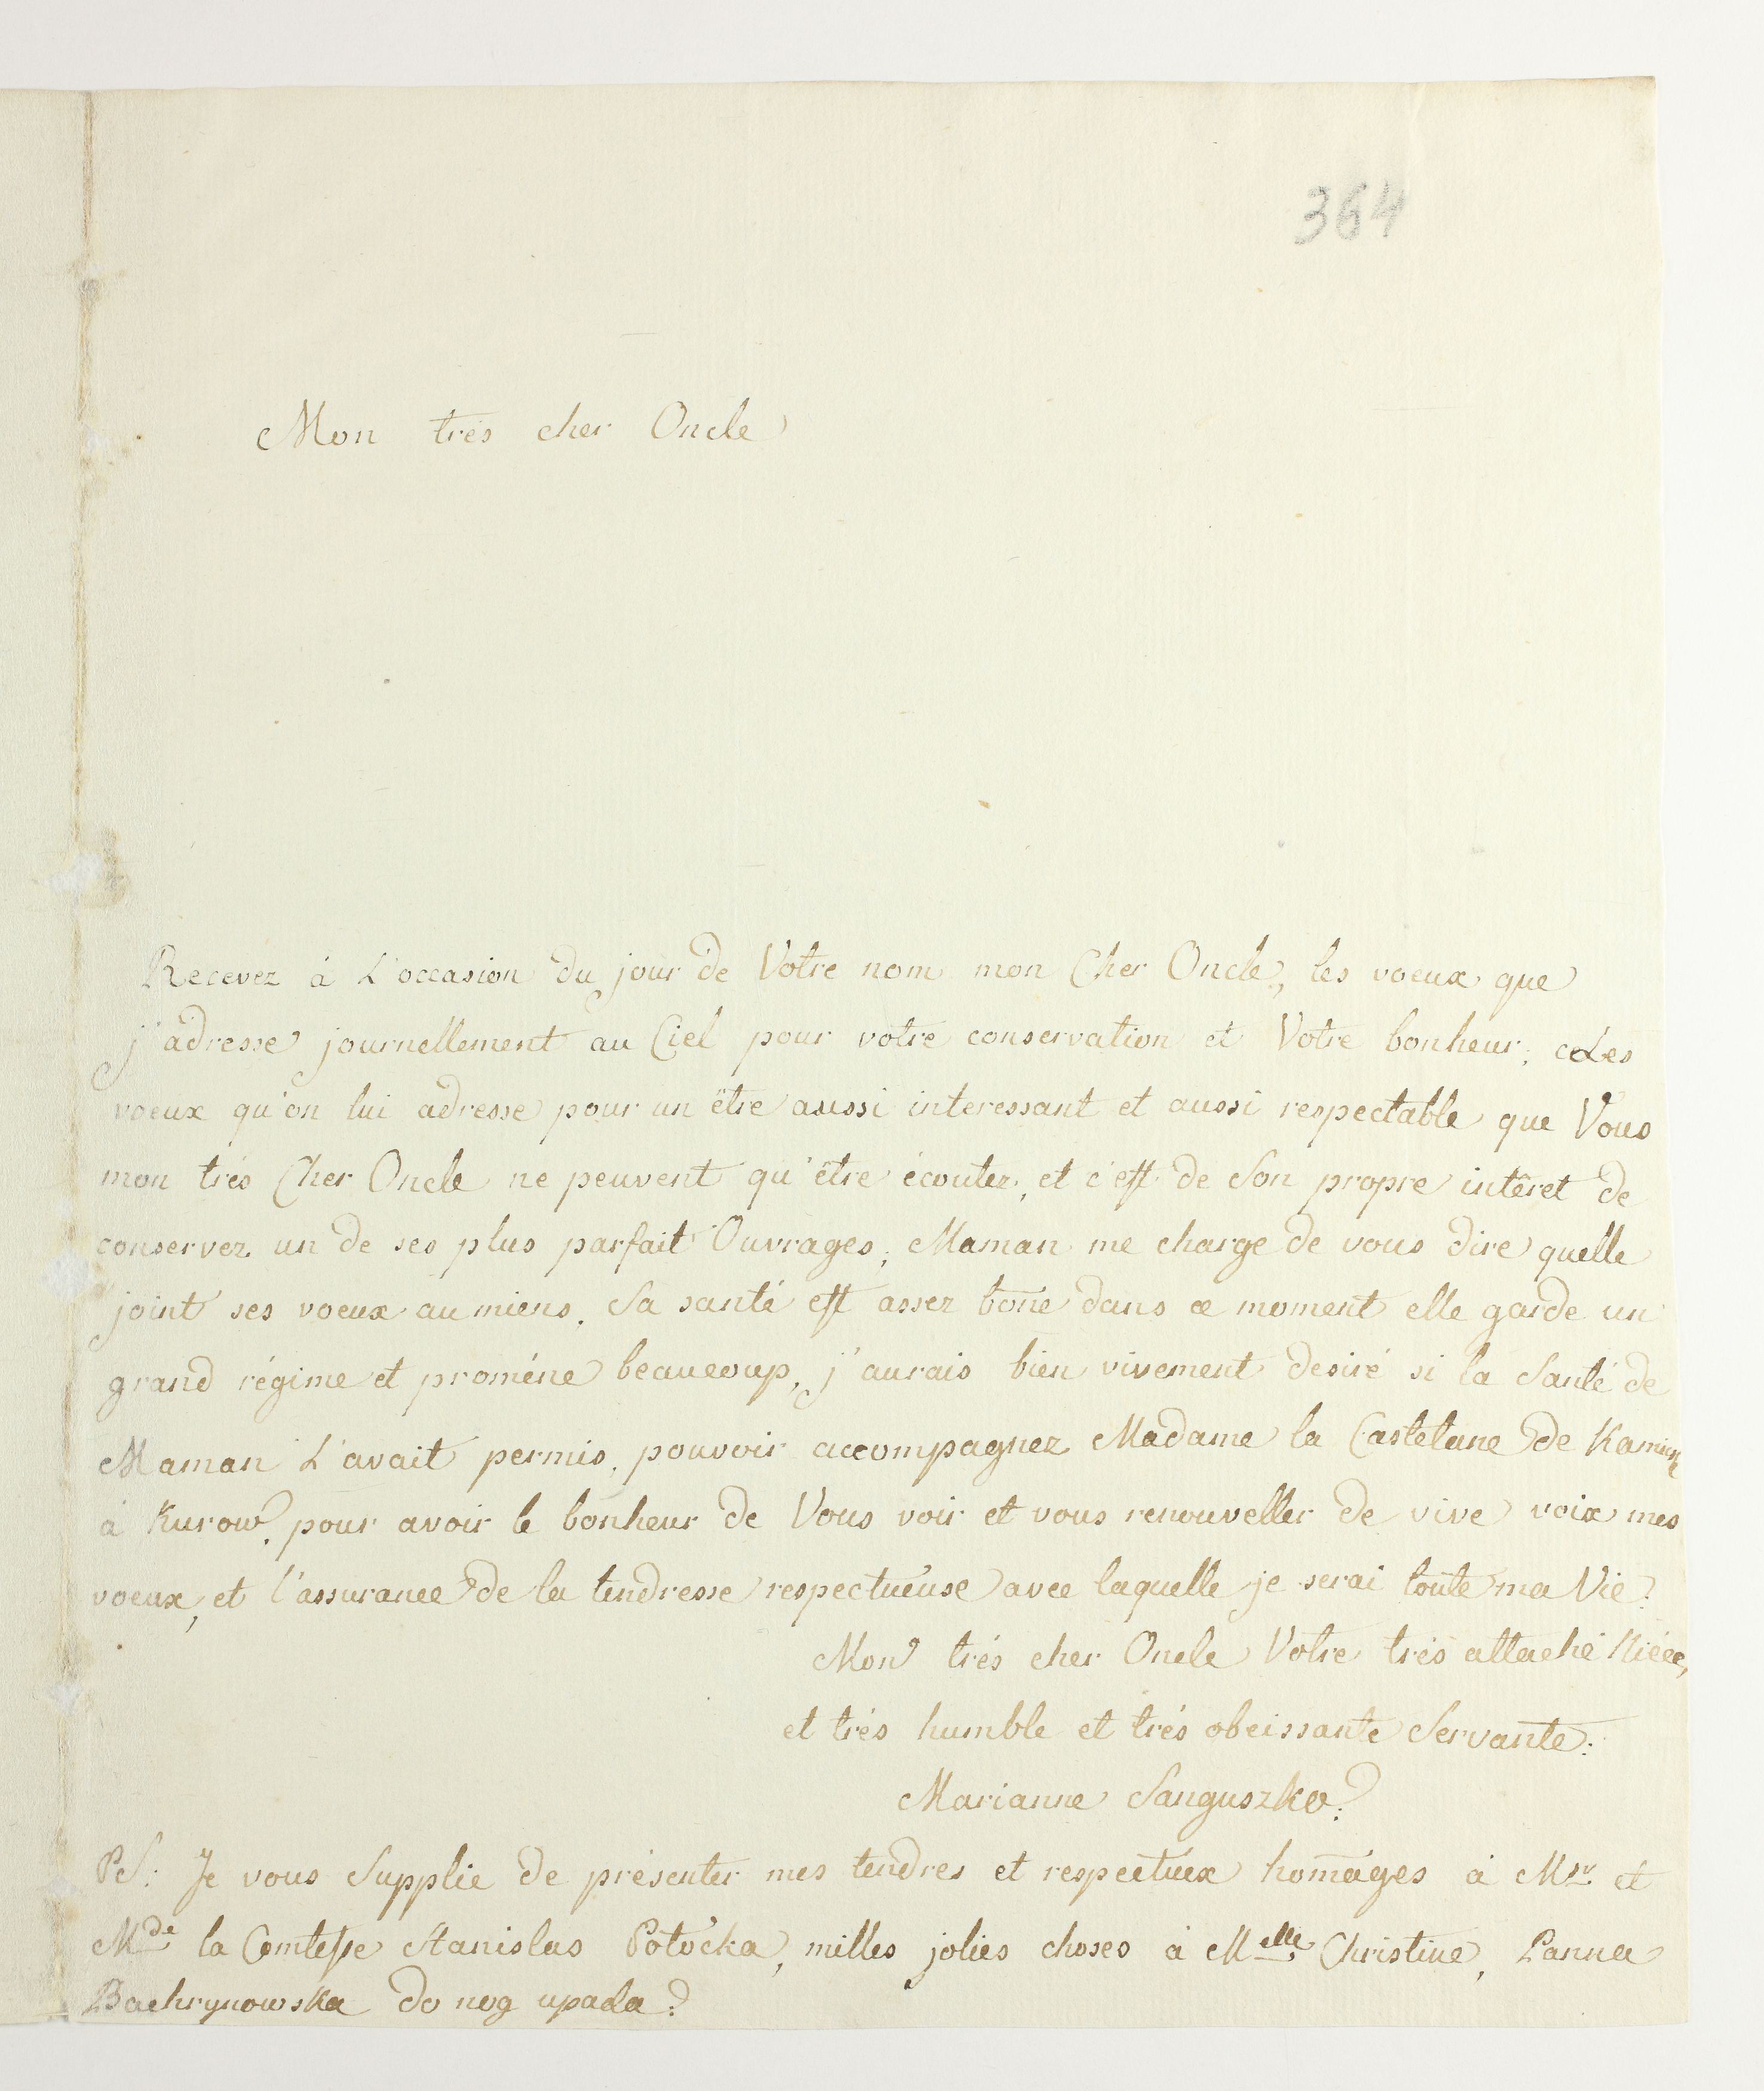 364
Mon très cher Oncle
Recevez à L'occasion du jour de Votre nom mon Cher Oncle, les voeux que
j'adresse journellement au Ciel pour votre conservation et Votre bonheur; Les
voeux qu'on lui adresse pour un être aussi interessant et aussi respectable que Vous
mon trés Cher Oncle ne peuvent qu'être écoutez, et c'est de Son propre intêret de
conservez un de ses plus parfait Ouvrages; Maman me charge de vous dire quelle
joint ses voeux au miens. Sa santé est assez bone dans ce moment elle garde un
grand régime et proméne beaucoup, j'aurais bien vivement desiré si la Santé de
Maman L'avait permis, pouvoir accompagnez Madame la Castelane de Kamine
à Kurow, pour avoir le bonheur de Vous voir et vous renouveller de vive voix mes
voeux, et l'assurance de la tendresse respectueuse avec laquelle je serai toute ma Vie:
Mon trés cher Oncle Votre trés attaché Niéce,
et trés humble et trés obeissante Servante:
Marianne Sanguszko:
PS: Je vous Supplie de présenter mes tendres et respectuex homages à Msr. et
Mde la Comtesse Stanislas Potocka, milles jolies choses à Melle Christine, Panna
Bachrynowska do nog upada: